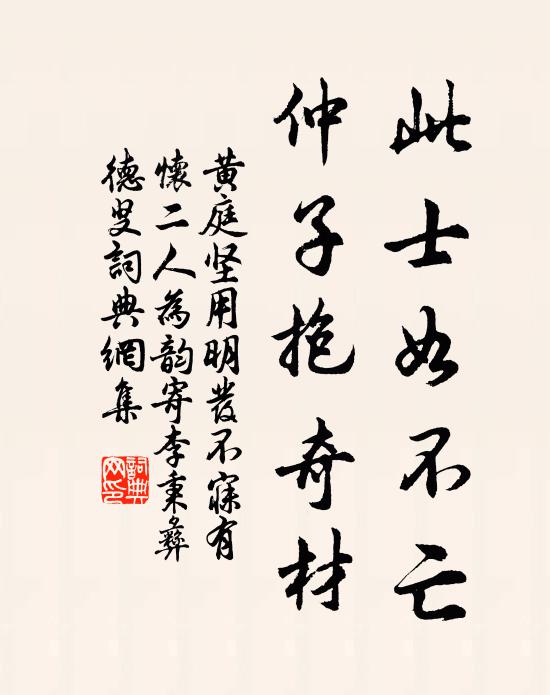 此士如不亡
仲子抱奇材
黄庭坚用明發不寐有
懷二人為韵寄李秉彝
德叟詞典網集
詞典网印